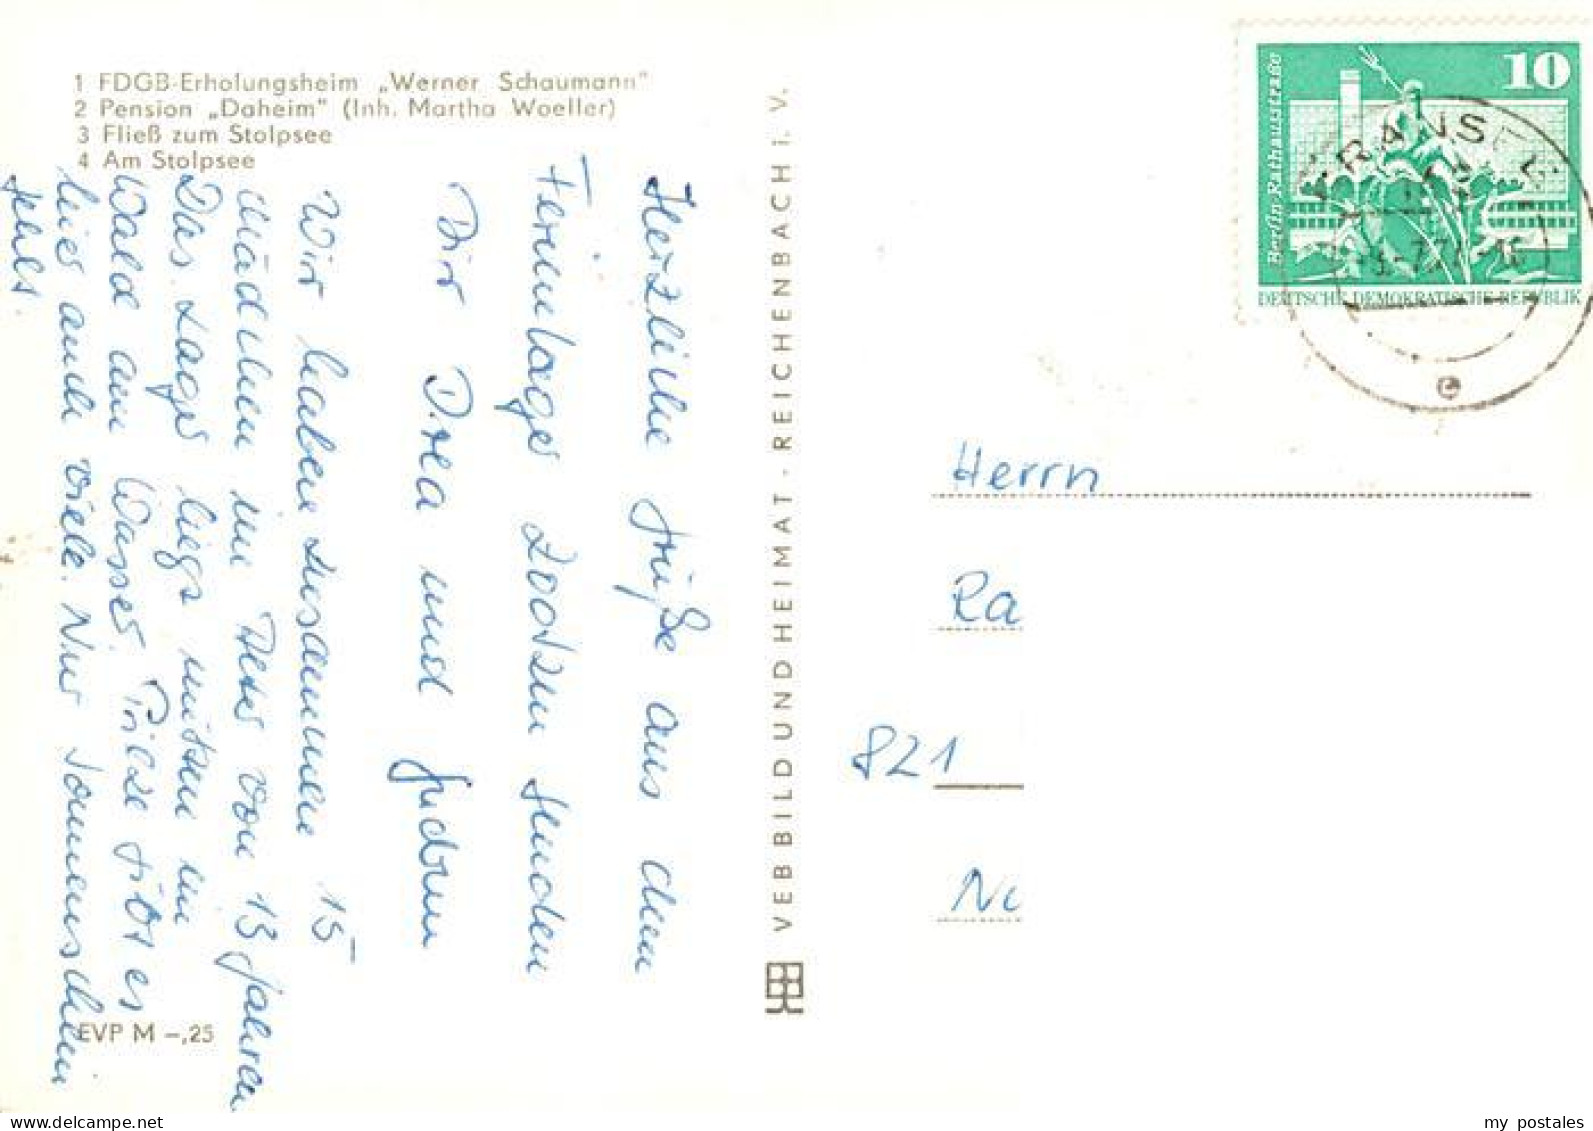 1 FDGB-Erholungsheim „Werner Schaumann"
2 Pension „Daheim" (Inh. Martha Woeller)
3 Fließ zum Stolpsee
4 Am Stolpsee
Herzliche Grüße aus dem
Ferienlager senden
Dir und Gudrun
Wir haben zusammen 15
Mädchen im Alter von 13 Jahren
Das Lager liegt mitten im
Wald am Wasser. Pilze gibt es
hier auch viele. Nur Sonnenschein
fehlt
EVP M –,25
VEB BILD UND HEIMAT · REICHENBACH i. V.
10
Berlin, Rathausstraße
DEUTSCHE DEMOKRATISCHE REPUBLIK
Herrn
Ra
821
my postales